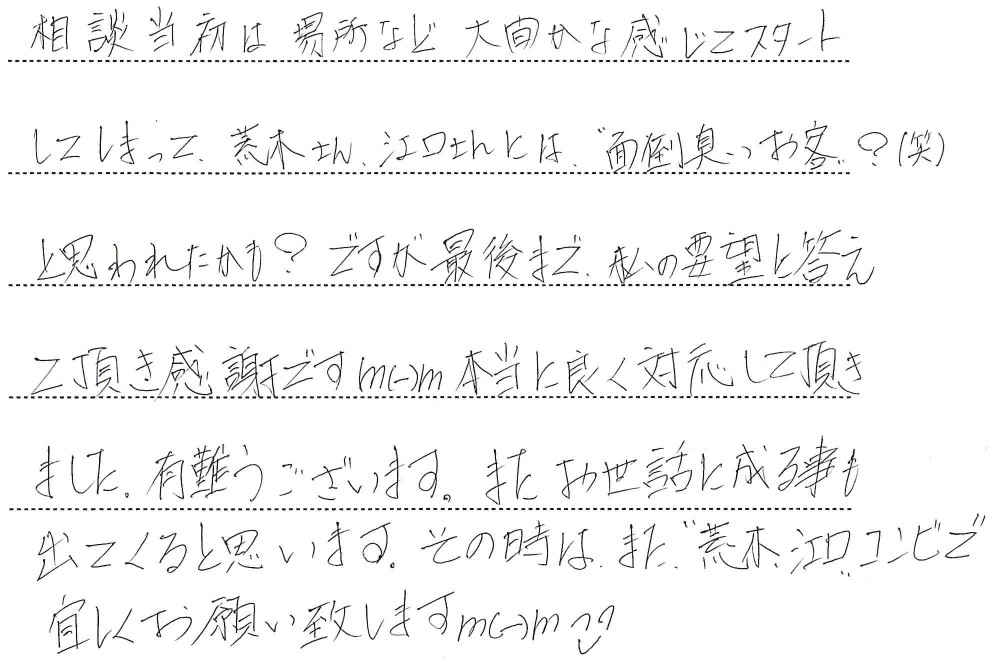 相談当初は場所など大間かな感じでスタート
してしまって、荒木さん、江口さんとは、"面倒臭いお客"?(笑)
と思われたかも?ですが最後まで、私の要望に答え
て頂き感謝ですm(-)m本当に良く対応して頂き
ました。有難うございます。またお世話に成る事も
出てくると思います。その時は、また、"荒木、江口"コンビで
宜しくお願い致しますm(-)m